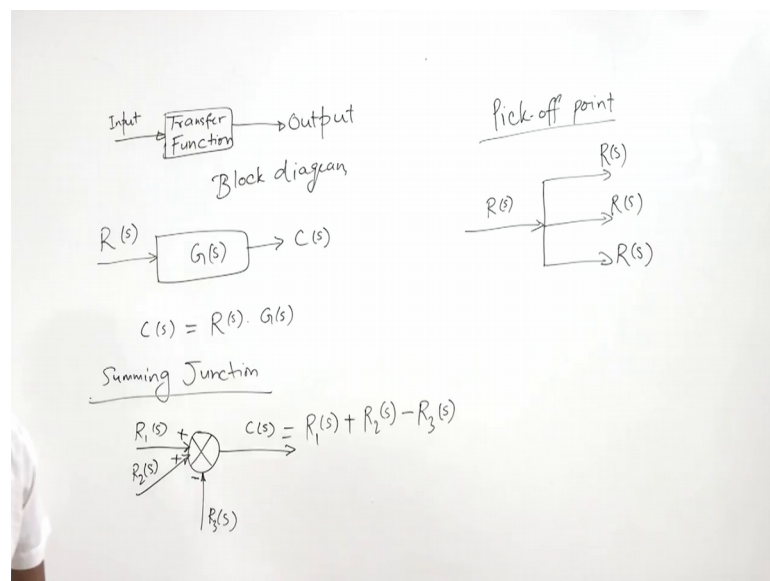 Input
Transfer
Function
Output
Block diagram
R(s)
G(s)
C(s)
C(s) = R(s). G(s)
Summing Junction
R1(s) +
R2(s) +
-
R3(s)
C(s) = R1(s) + R2(s) - R3(s)
Pick-off point
R(s)
R(s)
R(s)
R(s)